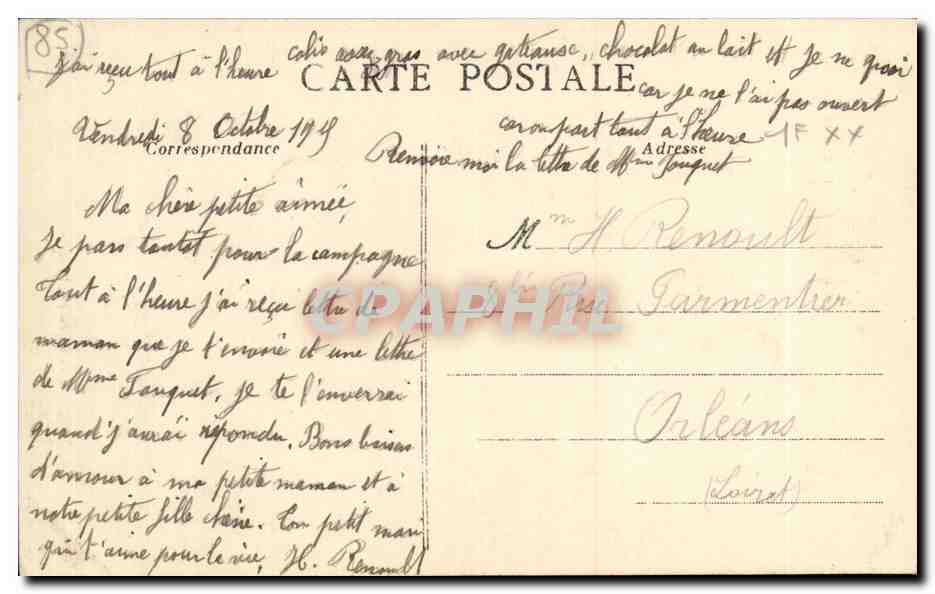 85
j'ai reçu tout à l'heure colis assez gros avec gateaux, chocolat au lait et je ne quoi
car je ne l'ai pas ouvert
car on part tout à l'heure 1F XX
CARTE POSTALE
Vendredi 8 Octobre 1915
Correspondance
Adresse
Renvoie moi la lettre de Mme Touquet
Ma chère petite aimée,
Je pars tantôt pour la campagne
Tout à l'heure j'ai reçu lettre de
maman que je t'envoie et une lettre
de Mme Touquet, je te l'enverrai
quand j'aurai répondu. Bons baisers
d'amour à ma petite maman et à
notre petite fille chérie. Ton petit mari
qui t'aime pour la vie, H. Renoult
Mme H Renoult
Rue Parmentier
Orléans
(Loiret)
CPAPHIL